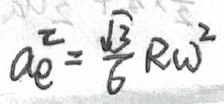 a_e^τ = \frac{\sqrt{3}}{6} Rω^2